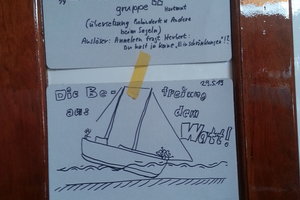 gruppe Hartmut
(Übersetzung Behinderte u Andere
beim Segeln)
Auslöser: Anneliese fragt Herbert:
Du hast ja keine "Einschränkungen"!?
29.5.19
Die Be- freiung
aus dem
Watt!